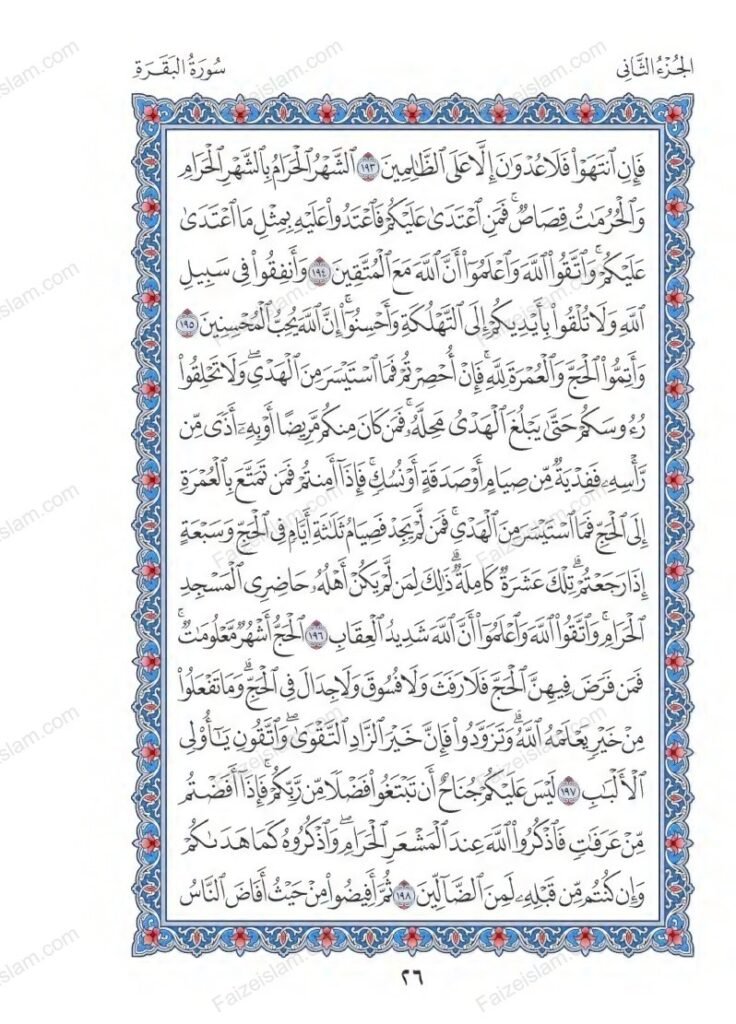 الجُزْءُ الثَّانِي
سُورَةُ البَقَرَةِ
فَإِنِ ٱنتَهَوْا۟ فَلَا عُدْوَٰنَ إِلَّا عَلَى ٱلظَّٰلِمِينَ ١٩٣ ٱلشَّهْرُ ٱلْحَرَامُ بِٱلشَّهْرِ ٱلْحَرَامِ
وَٱلْحُرُمَٰتُ قِصَاصٌ ۚ فَمَنِ ٱعْتَدَىٰ عَلَيْكُمْ فَٱعْتَدُوا۟ عَلَيْهِ بِمِثْلِ مَا ٱعْتَدَىٰ
عَلَيْكُمْ ۚ وَٱتَّقُوا۟ ٱللَّهَ وَٱعْلَمُوٓا۟ أَنَّ ٱللَّهَ مَعَ ٱلْمُتَّقِينَ ١٩٤ وَأَنفِقُوا۟ فِى سَبِيلِ
ٱللَّهِ وَلَا تُلْقُوا۟ بِأَيْدِيكُمْ إِلَى ٱلتَّهْلُكَةِ ۛ وَأَحْسِنُوٓا۟ ۛ إِنَّ ٱللَّهَ يُحِبُّ ٱلْمُحْسِنِينَ ١٩٥
وَأَتِمُّوا۟ ٱلْحَجَّ وَٱلْعُمْرَةَ لِلَّهِ ۚ فَإِنْ أُحْصِرْتُمْ فَمَا ٱسْتَيْسَرَ مِنَ ٱلْهَدْىِ ۖ وَلَا تَحْلِقُوا۟
رُءُوسَكُمْ حَتَّىٰ يَبْلُغَ ٱلْهَدْىُ مَحِلَّهُۥ ۚ فَمَن كَانَ مِنكُم مَّرِيضًا أَوْ بِهِۦٓ أَذًى مِّن
رَّأْسِهِۦ فَفِدْيَةٌ مِّن صِيَامٍ أَوْ صَدَقَةٍ أَوْ نُسُكٍ ۚ فَإِذَآ أَمِنتُمْ فَمَن تَمَتَّعَ بِٱلْعُمْرَةِ
إِلَى ٱلْحَجِّ فَمَا ٱسْتَيْسَرَ مِنَ ٱلْهَدْىِ ۚ فَمَن لَّمْ يَجِدْ فَصِيَامُ ثَلَٰثَةِ أَيَّامٍ فِى ٱلْحَجِّ وَسَبْعَةٍ
إِذَا رَجَعْتُمْ ۗ تِلْكَ عَشَرَةٌ كَامِلَةٌ ۗ ذَٰلِكَ لِمَن لَّمْ يَكُنْ أَهْلُهُۥ حَاضِرِى ٱلْمَسْجِدِ
ٱلْحَرَامِ ۚ وَٱتَّقُوا۟ ٱللَّهَ وَٱعْلَمُوٓا۟ أَنَّ ٱللَّهَ شَدِيدُ ٱلْعِقَابِ ١٩٦ ٱلْحَجُّ أَشْهُرٌ مَّعْلُومَٰتٌ ۚ
فَمَن فَرَضَ فِيهِنَّ ٱلْحَجَّ فَلَا رَفَثَ وَلَا فُسُوقَ وَلَا جِدَالَ فِى ٱلْحَجِّ ۗ وَمَا تَفْعَلُوا۟
مِنْ خَيْرٍ يَعْلَمْهُ ٱللَّهُ ۗ وَتَزَوَّدُوا۟ فَإِنَّ خَيْرَ ٱلزَّادِ ٱلتَّقْوَىٰ ۖ وَٱتَّقُونِ يَٰٓأُو۟لِى
ٱلْأَلْبَٰبِ ١٩٧ لَيْسَ عَلَيْكُمْ جُنَاحٌ أَن تَبْتَغُوا۟ فَضْلًا مِّن رَّبِّكُمْ ۚ فَإِذَآ أَفَضْتُم
مِّنْ عَرَفَٰتٍ فَٱذْكُرُوا۟ ٱللَّهَ عِندَ ٱلْمَشْعَرِ ٱلْحَرَامِ ۖ وَٱذْكُرُوهُ كَمَا هَدَىٰكُمْ
وَإِن كُنتُم مِّن قَبْلِهِۦ لَمِنَ ٱلضَّآلِّينَ ١٩٨ ثُمَّ أَفِيضُوا۟ مِنْ حَيْثُ أَفَاضَ ٱلنَّاسُ
٢٦
Faizeislam.com